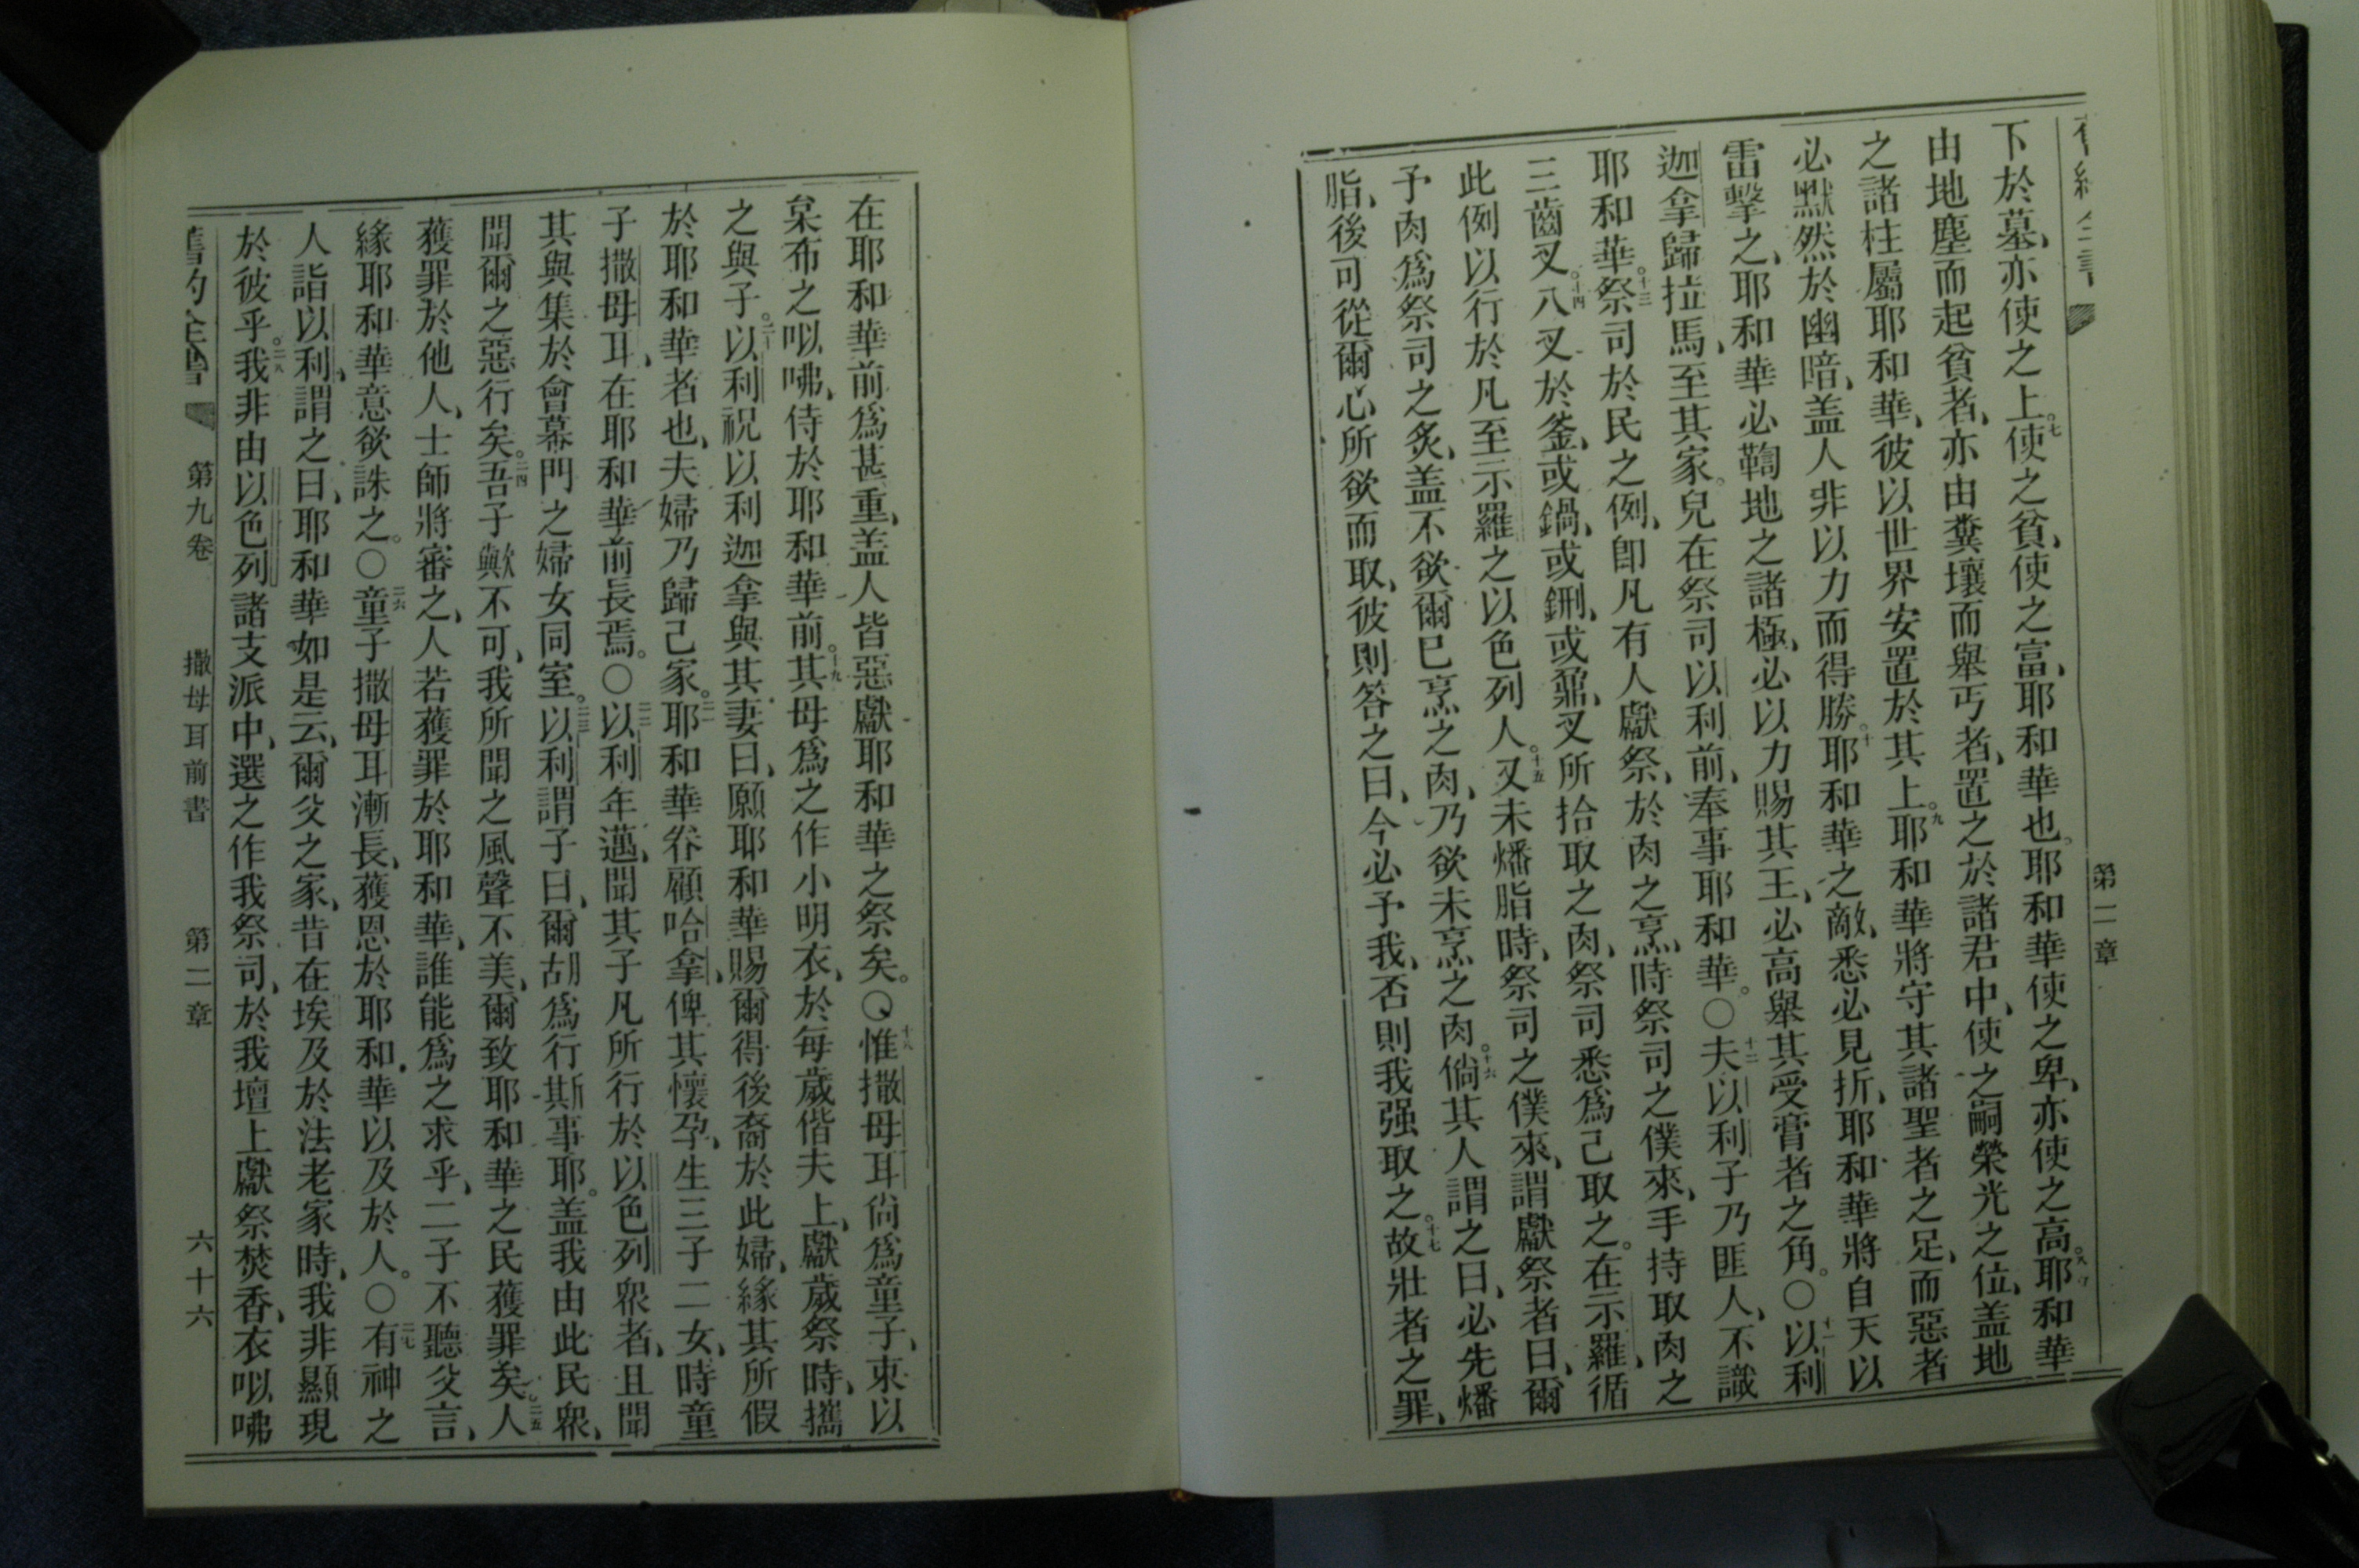 第二章
下於墓、亦使之上。七使之貧、使之富、耶和華也。耶和華使之卑、亦使之高。八耶和華
由地塵而起貧者、亦由糞壤而舉丐者、置之於諸君中、使之嗣榮光之位、盖地
之諸柱屬耶和華、彼以世界安置於其上。九耶和華將守其諸聖者之足、而惡者
必默然於幽暗、盖人非以力而得勝。十耶和華之敵、悉必見折、耶和華將自天以
雷擊之、耶和華必鞫地之諸極、必以力賜其王、必高舉其受膏者之角。○十一以利
迦拿歸拉馬、至其家。兒在祭司以利前、奉事耶和華。○十二夫以利子乃匪人、不識
耶和華。十三祭司於民之例、卽凡有人獻祭、於肉之烹時、祭司之僕來、手持取肉之
三齒叉。十四八叉於釜、或鍋、或鉶、或鼐、叉所拾取之肉、祭司悉爲己取之。在示羅、循
此例以行於凡至示羅之以色列人。十五又未燔脂時、祭司之僕來、謂獻祭者曰、爾
予肉爲祭司之炙、盖不欲爾已烹之肉、乃欲未烹之肉。十六倘其人謂之曰、必先燔
脂、後可從爾心所欲而取、彼則答之曰、今必予我、否則我强取之。十七故壯者之罪、
在耶和華前爲甚重、盖人皆惡獻耶和華之祭矣。○十八惟撒母耳尙爲童子、束以
枲布之㕽咈、侍於耶和華前。十九其母爲之作小明衣、於每歲偕夫上、獻歲祭時、攜
之與子。二十以利祝以利迦拿與其妻曰、願耶和華賜爾得後裔於此婦、緣其所假
於耶和華者也、夫婦乃歸己家。二一耶和華眷顧哈拿、俾其懷孕、生三子二女、時童
子撒母耳、在耶和華前長焉。○二二以利年邁、聞其子凡所行於以色列衆者、且聞
其與集於會幕門之婦女同室。二三以利謂子曰、爾胡爲行斯事耶。盖我由此民衆、
聞爾之惡行矣。二四吾子歟不可、我所聞之風聲不美、爾致耶和華之民獲罪矣、二五人
獲罪於他人、士師將審之、人若獲罪於耶和華、誰能爲之求乎、二子不聽父言、
緣耶和華意欲誅之。○二六童子撒母耳漸長、獲恩於耶和華以及於人。○二七有神之
人詣以利、謂之曰、耶和華如是云、爾父之家、昔在埃及於法老家時、我非顯現
於彼乎。二八我非由以色列諸支派中、選之作我祭司、於我壇上獻祭焚香、衣㕽咈
舊約全書 第九卷 撒母耳前書 第二章 六十六